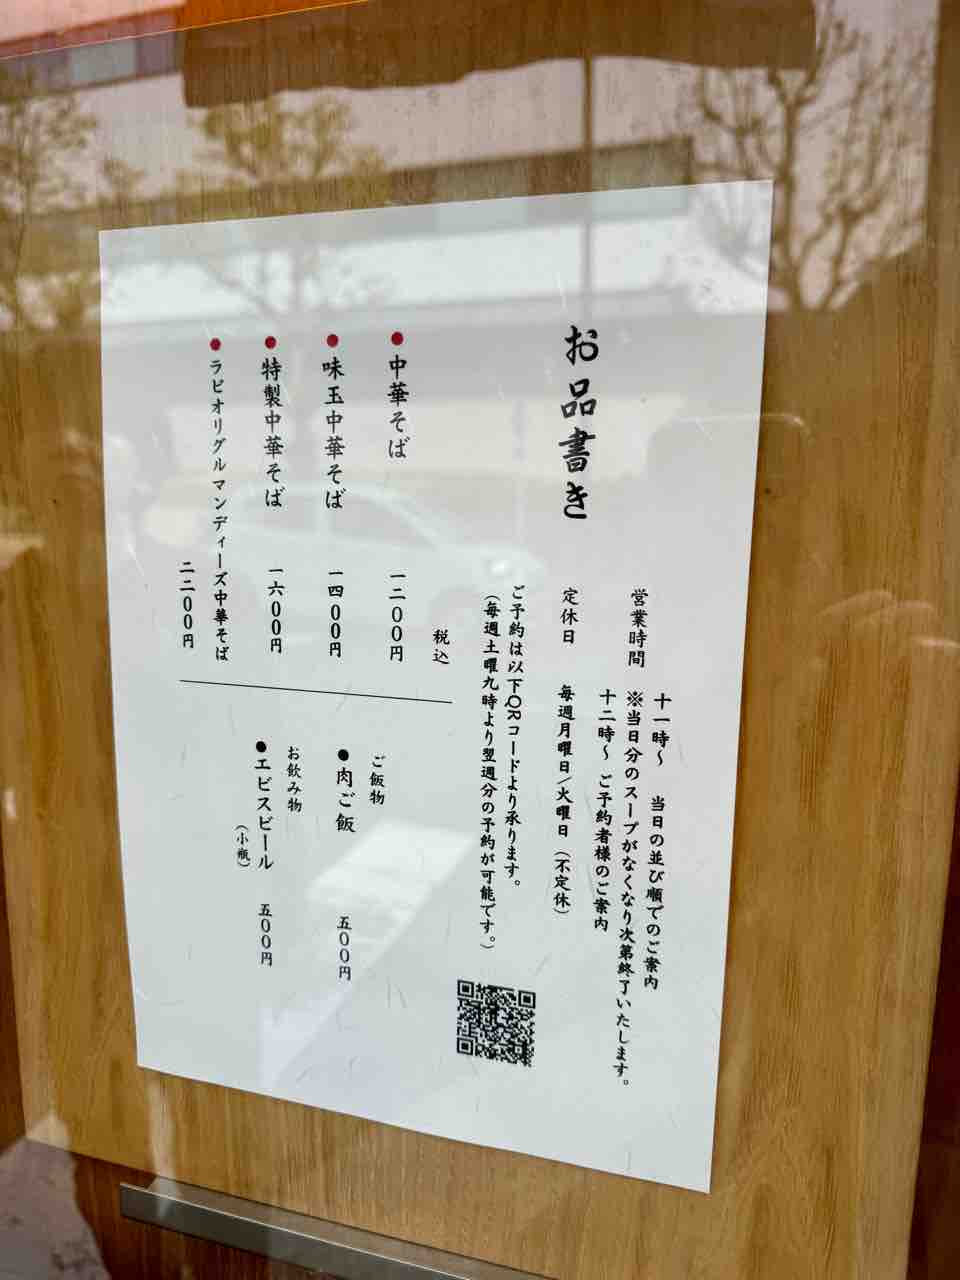 お品書き
営業時間
十一時〜 当日の並び順でのご案内
※当日分のスープがなくなり次第終了いたします。
十二時〜 ご予約者様のご案内
定休日 毎週月曜日/火曜日(不定休)
ご予約は以下QRコードより承ります。
(毎週土曜九時より翌週分の予約が可能です。)
税込
● 中華そば 一二00円
● 味玉中華そば 一四00円
● 特製中華そば 一六00円
● ラビオリグルマンディーズ中華そば
二二00円
ご飯物
● 肉ご飯 五00円
お飲み物
● エビスビール 五00円
(小瓶)